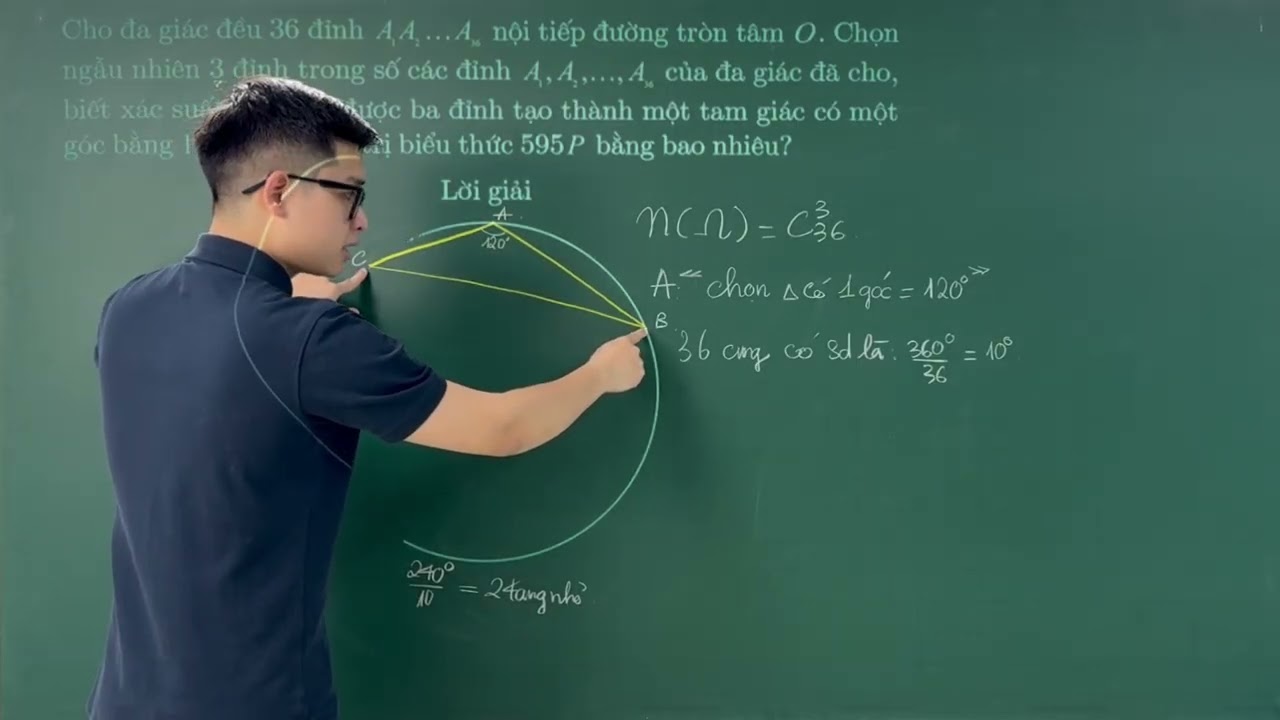 Cho đa giác đều 36 đỉnh A₁A₂...A₃₆ nội tiếp đường tròn tâm O. Chọn
ngẫu nhiên 3 đỉnh trong số các đỉnh A₁, A₂,..., A₃₆ của đa giác đã cho,
biết xác ba đỉnh tạo thành một tam giác có một
góc bằng biểu thức 595P bằng bao nhiêu?
Lời giải
A
120°
C
B
n(Ω) = C³₃₆
A: "chọn Δ có 1 góc = 120°"
36 cung có sđ là: 360°/36 = 10°
240°/10 = 24 cung nhỏ